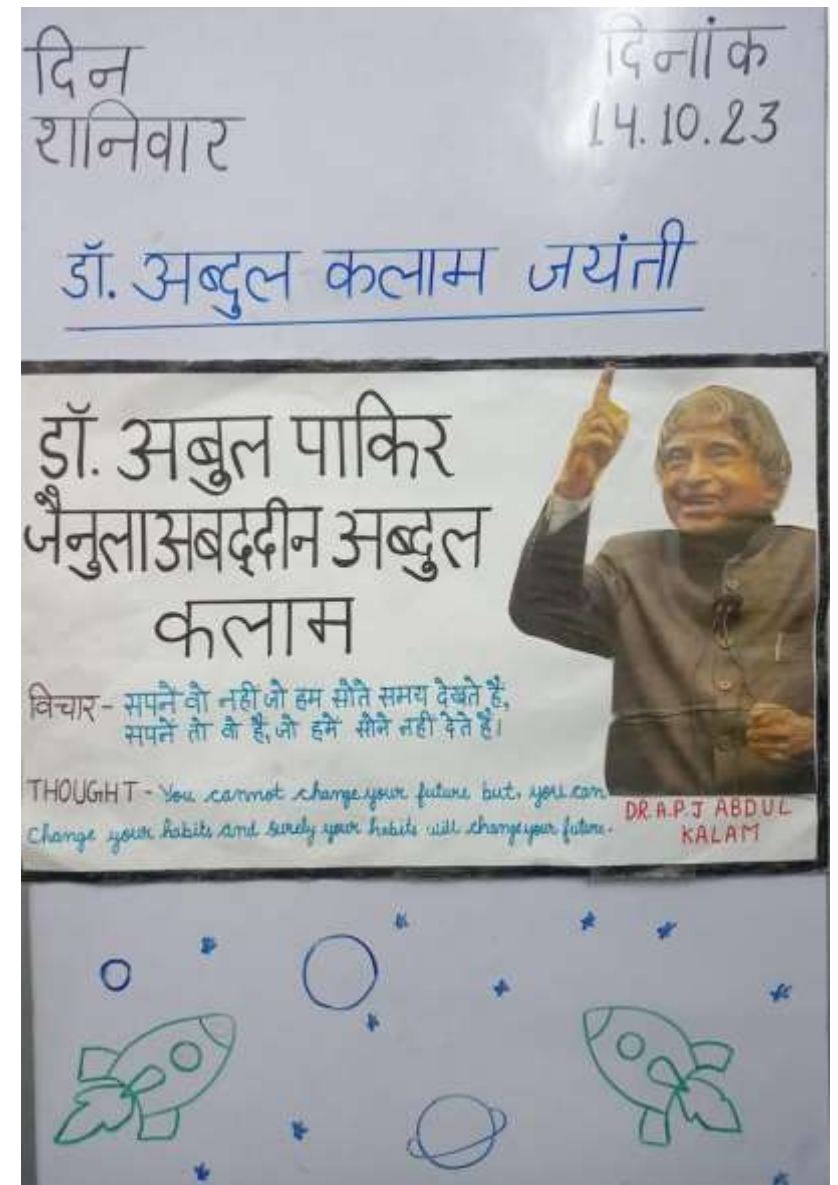 दिन
शनिवार
दिनांक
14.10.23
डॉ. अब्दुल कलाम जयंती
डॉ. अबुल पाकिर
जैनुलाअबद्दीन अब्दुल
कलाम
विचार - सपने वो नही जो हम सोते समय देखते है,
सपने तो वो है, जो हमे सोने नही देते है।
THOUGHT - You cannot change your future but, you can
change your habits and surely your habits will change your future.
DR. A.P.J ABDUL
KALAM